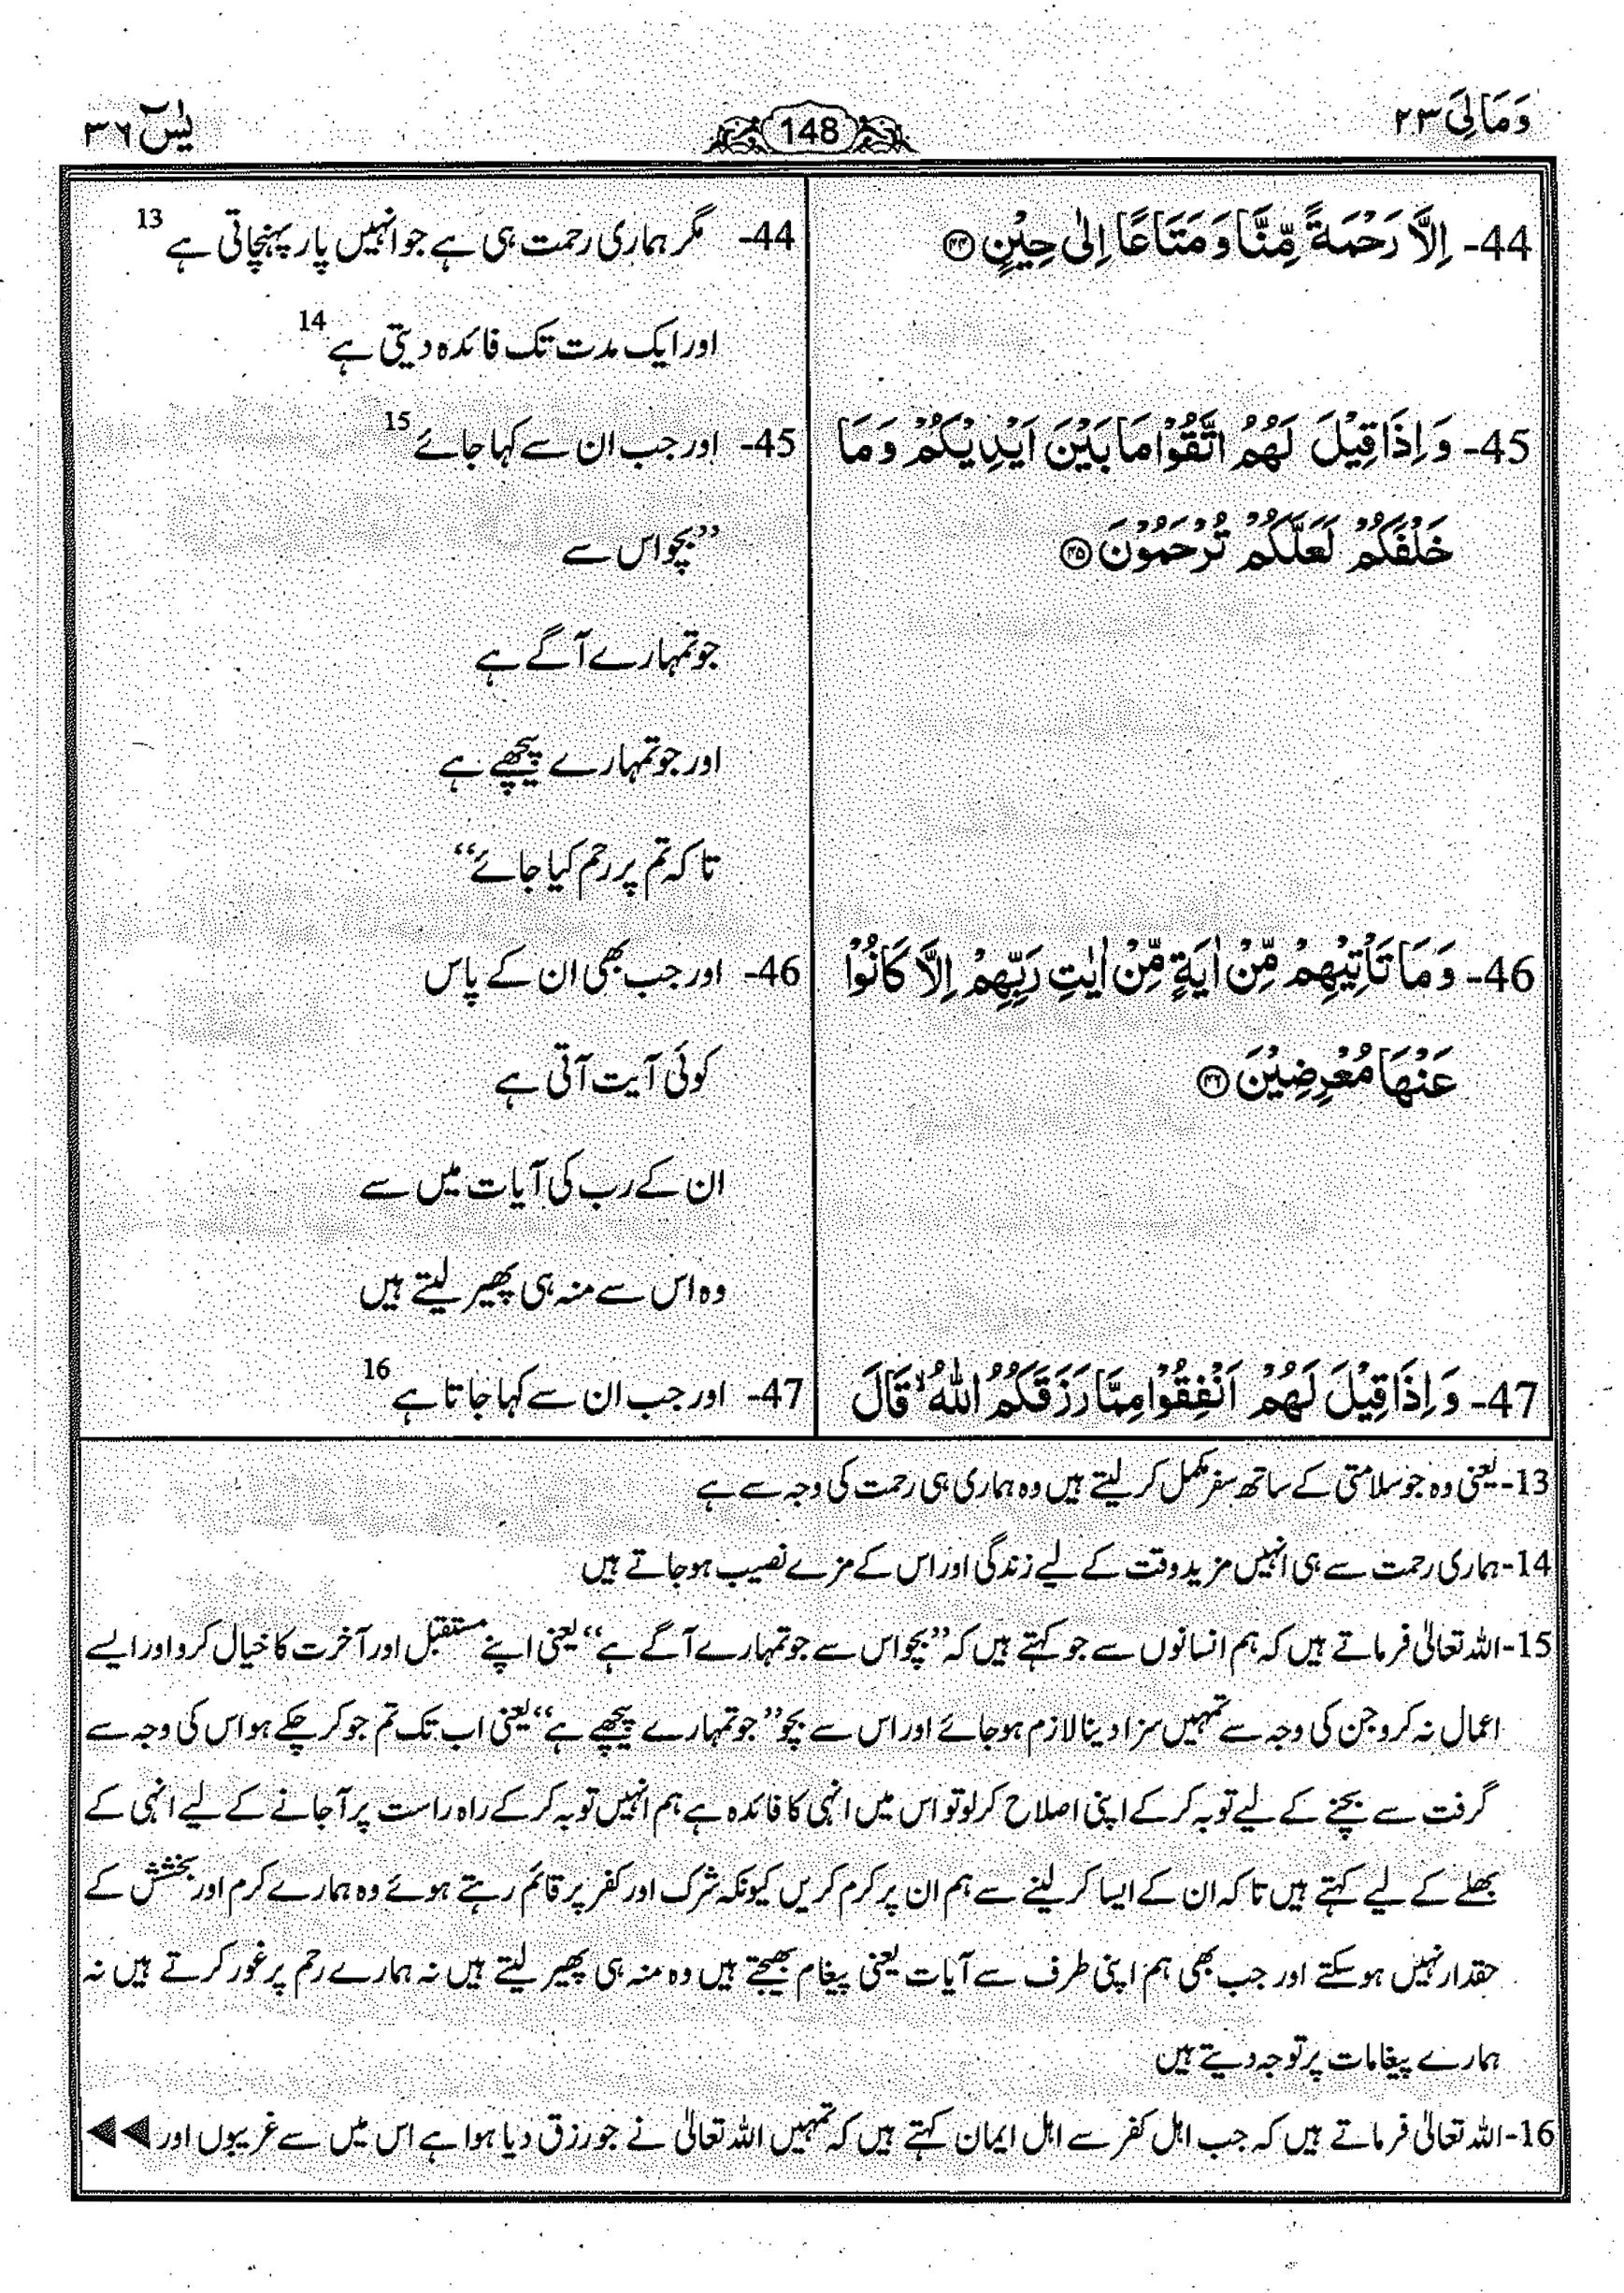 وَمَالِیَ ۲۳
148
یٰسٓ ۳۶
44- اِلَّا رَحْمَةً مِّنَّا وَ مَتَاعًا اِلٰى حِیْنٍ ﴿۴۴﴾
45- وَ اِذَا قِیْلَ لَهُمُ اتَّقُوْا مَا بَیْنَ اَیْدِیْكُمْ وَ مَا
خَلْفَكُمْ لَعَلَّكُمْ تُرْحَمُوْنَ ﴿۴۵﴾
46- وَ مَا تَاْتِیْهِمْ مِّنْ اٰیَةٍ مِّنْ اٰیٰتِ رَبِّهِمْ اِلَّا كَانُوْا
عَنْهَا مُعْرِضِیْنَ ﴿۴۶﴾
47- وَ اِذَا قِیْلَ لَهُمْ اَنْفِقُوْا مِمَّا رَزَقَكُمُ اللّٰهُ ۙ قَالَ
44- مگر ہماری رحمت ہی ہے جو انہیں پار پہنچاتی ہے 13
اور ایک مدت تک فائدہ دیتی ہے 14
45- اور جب ان سے کہا جائے 15
”بچو اس سے
جو تمہارے آگے ہے
اور جو تمہارے پیچھے ہے
تا کہ تم پر رحم کیا جائے“
46- اور جب بھی ان کے پاس
کوئی آیت آتی ہے
ان کے رب کی آیات میں سے
وہ اس سے منہ ہی پھیر لیتے ہیں
47- اور جب ان سے کہا جاتا ہے 16
13- یعنی وہ جو سلامتی کے ساتھ سفر مکمل کر لیتے ہیں وہ ہماری ہی رحمت کی وجہ سے ہے
14- ہماری رحمت سے ہی انہیں مزید وقت کے لیے زندگی اور اس کے مزے نصیب ہو جاتے ہیں
15- اللہ تعالیٰ فرماتے ہیں کہ ہم انسانوں سے جو کہتے ہیں کہ ”بچو اس سے جو تمہارے آگے ہے“ یعنی اپنے مستقبل اور آخرت کا خیال کرو اور ایسے
اعمال نہ کرو جن کی وجہ سے تمہیں سزا دینا لازم ہو جائے اور اس سے بچو ”جو تمہارے پیچھے ہے“ یعنی اب تک تم جو کر چکے ہو اس کی وجہ سے
گرفت سے بچنے کے لیے توبہ کر کے اپنی اصلاح کر لو تو اس میں انہی کا فائدہ ہے ہم انہیں توبہ کر کے راہ راست پر آ جانے کے لیے انہی کے
بھلے کے لیے کہتے ہیں تا کہ ان کے ایسا کر لینے سے ہم ان پر کرم کریں کیونکہ شرک اور کفر پر قائم رہتے ہوئے وہ ہمارے کرم اور بخشش کے
حقدار نہیں ہو سکتے اور جب بھی ہم اپنی طرف سے آیات یعنی پیغام بھیجتے ہیں وہ منہ ہی پھیر لیتے ہیں نہ ہمارے رحم پر غور کرتے ہیں نہ
ہمارے پیغامات پر توجہ دیتے ہیں
16- اللہ تعالیٰ فرماتے ہیں کہ جب اہل کفر سے اہل ایمان کہتے ہیں کہ تمہیں اللہ تعالیٰ نے جو رزق دیا ہوا ہے اس میں سے غریبوں اور ◀◀